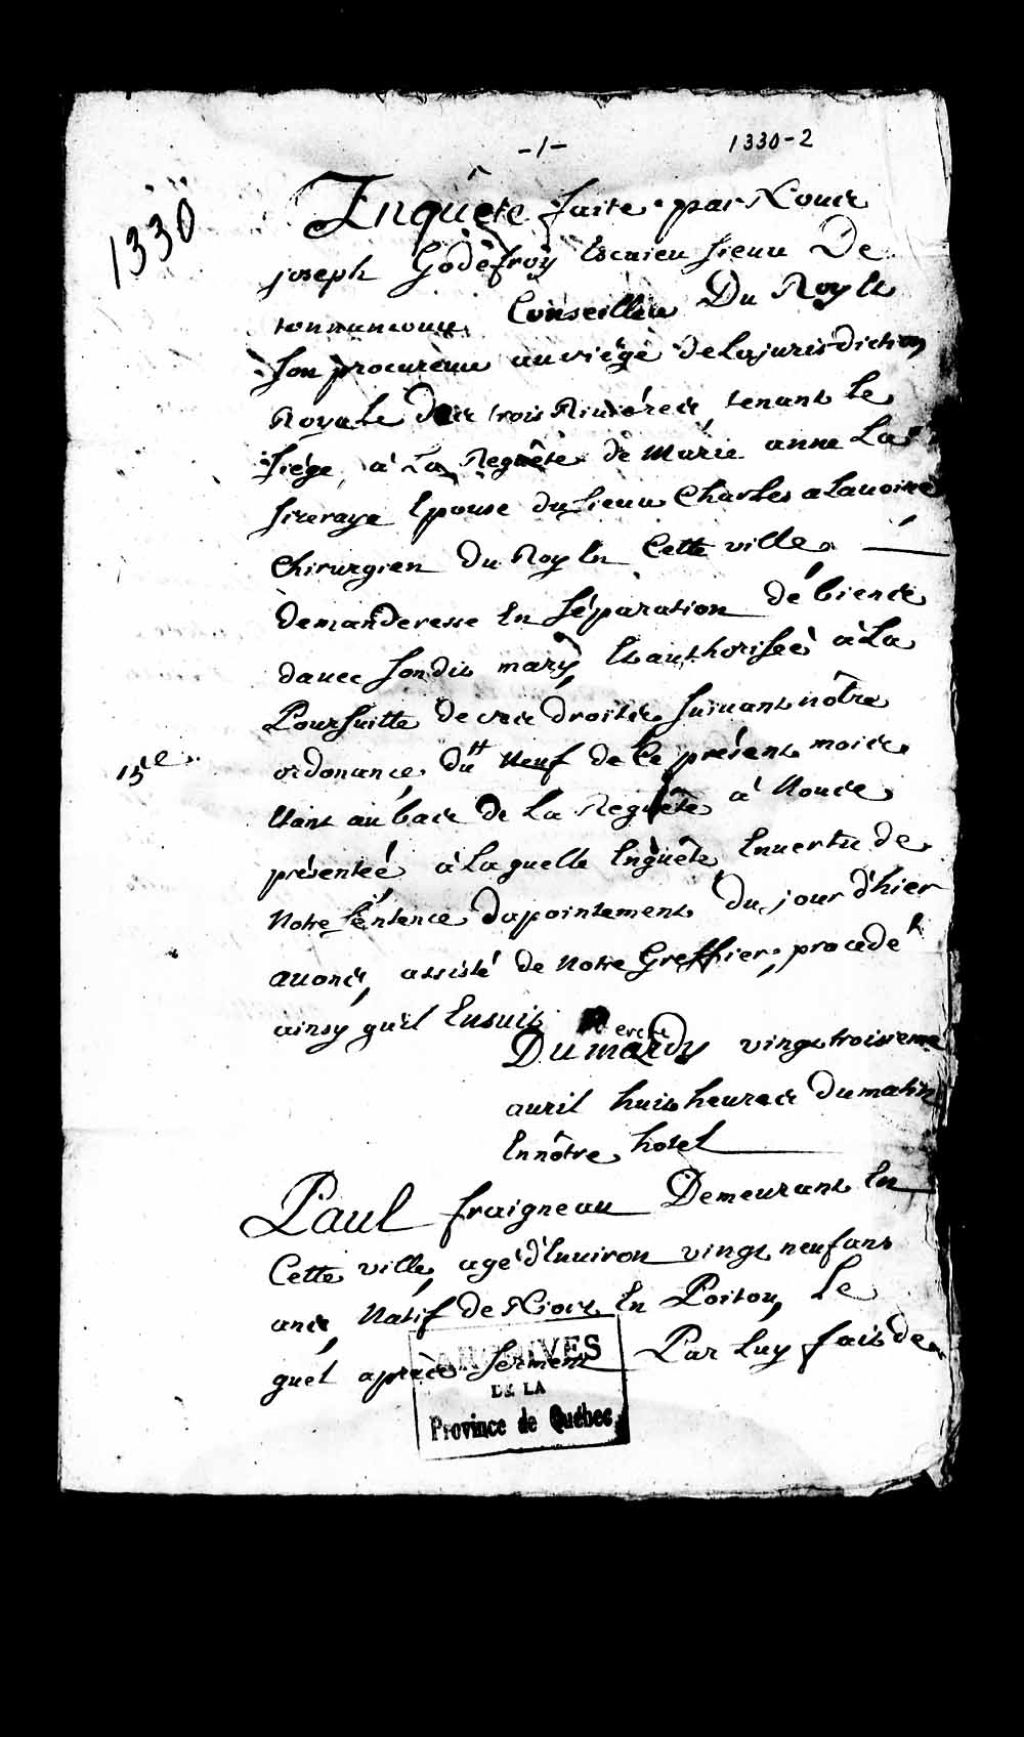 -1-
1330-2
1330
Enquête faite par Nous
joseph Godefroy Escuieu sieur De
tonnancour Conseilleu Du Roy Et
son procureur au siége dela jurisdiction
Royale des trois Riuiéres, tenant le
siége, à La Requête de Marie anne La
siseraye Epouse du sieur Charles alauoine
Chirurgien du Roy En Cette ville,
demanderesse En séparation dé biens
dauec sondit mary, Et authorisée à La
Poursuitte de ses droits, suiuant nôtre
ordonance, du neuf de Ce présent mois
15e.
Etant au bas de La Requête à Nous
présentée à Laquelle Enquête, Enuertu de
Notre sentence dapointement du jour d'hier
auons, assisté de Notre Greffier, procedé
ainsy quil Ensuit
Du mardy vingt troisieme
auril huit heures du matin
En nôtre hotel
Paul fraigneau Demeurant En
Cette ville, agé d'Enuiron vingt neuf ans
ans, Natif de Niort En Poitou, Le
quel apres serment Par Luy fait de
ARCHIVES
DE LA
Province de Québec